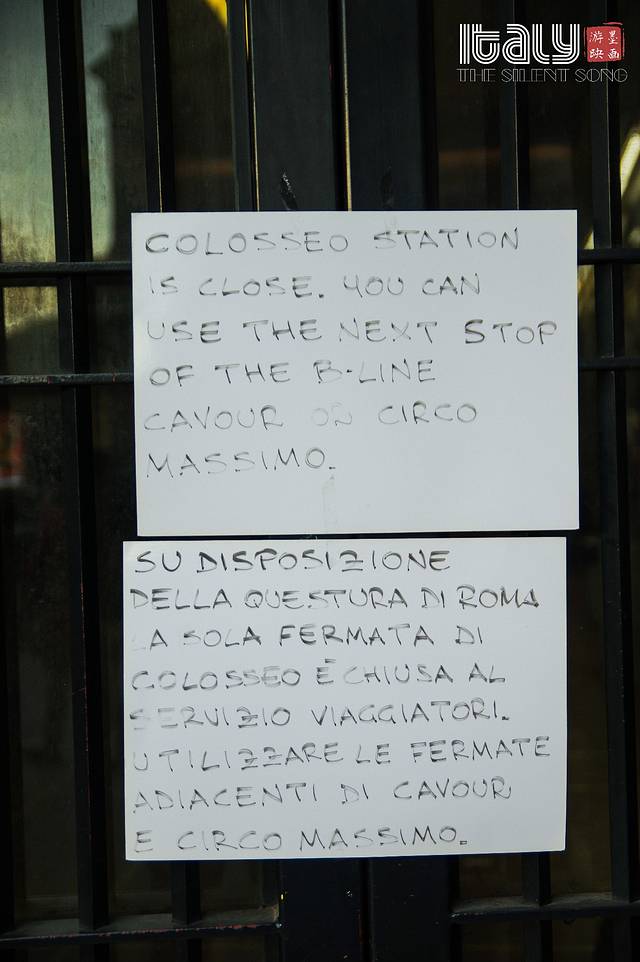 Italy
游墨
映画
THE SILENT SONG
COLOSSEO STATION
IS CLOSE. YOU CAN
USE THE NEXT STOP
OF THE B-LINE
CAVOUR OR CIRCO
MASSIMO.
SU DISPOSIZIONE
DELLA QUESTURA DI ROMA
LA SOLA FERMATA DI
COLOSSEO È CHIUSA AL
SERVIZIO VIAGGIATORI.
UTILIZZARE LE FERMATE
ADIACENTI DI CAVOUR
E CIRCO MASSIMO.